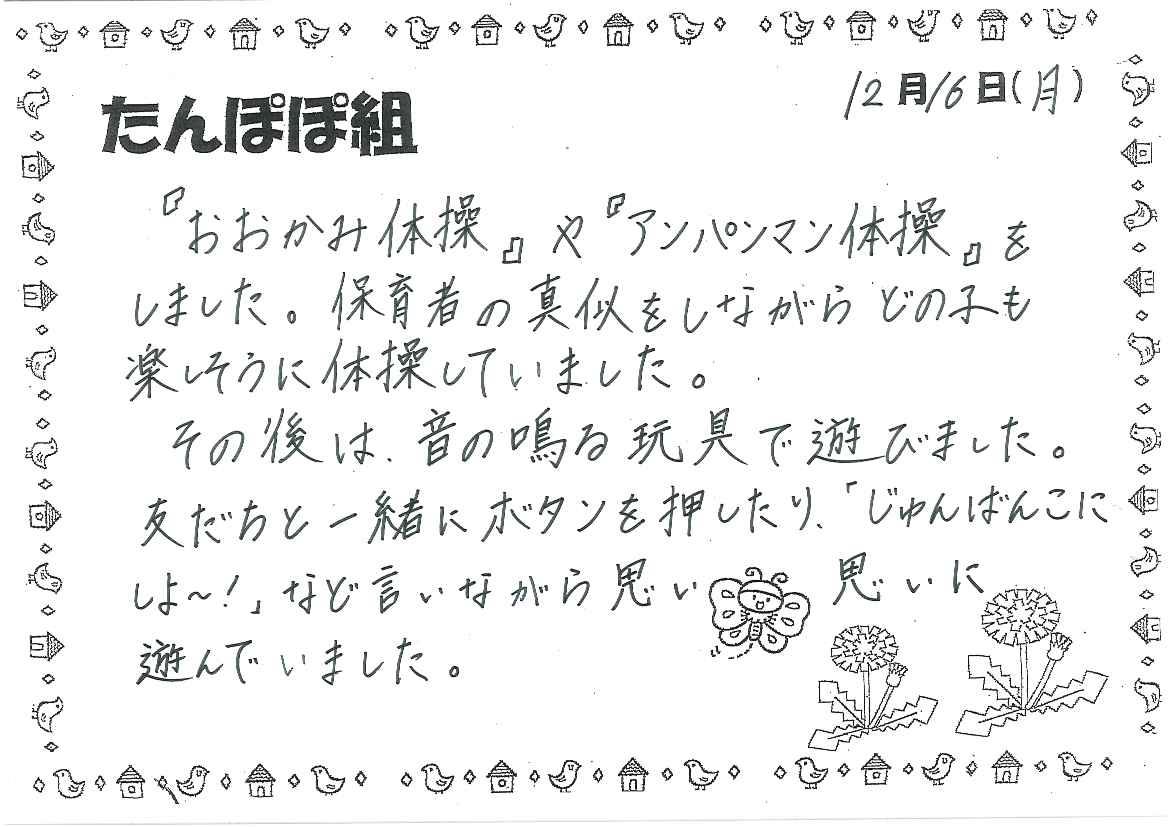 たんぽぽ組
12月16日(月)
『おおかみ体操』や『アンパンマン体操』を
しました。保育者の真似をしながらどの子も
楽しそうに体操していました。
その後は、音の鳴る玩具で遊びました。
友だちと一緒にボタンを押したり、「じゅんばんこに
しよ〜!」など言いながら思い思いに
遊んでいました。